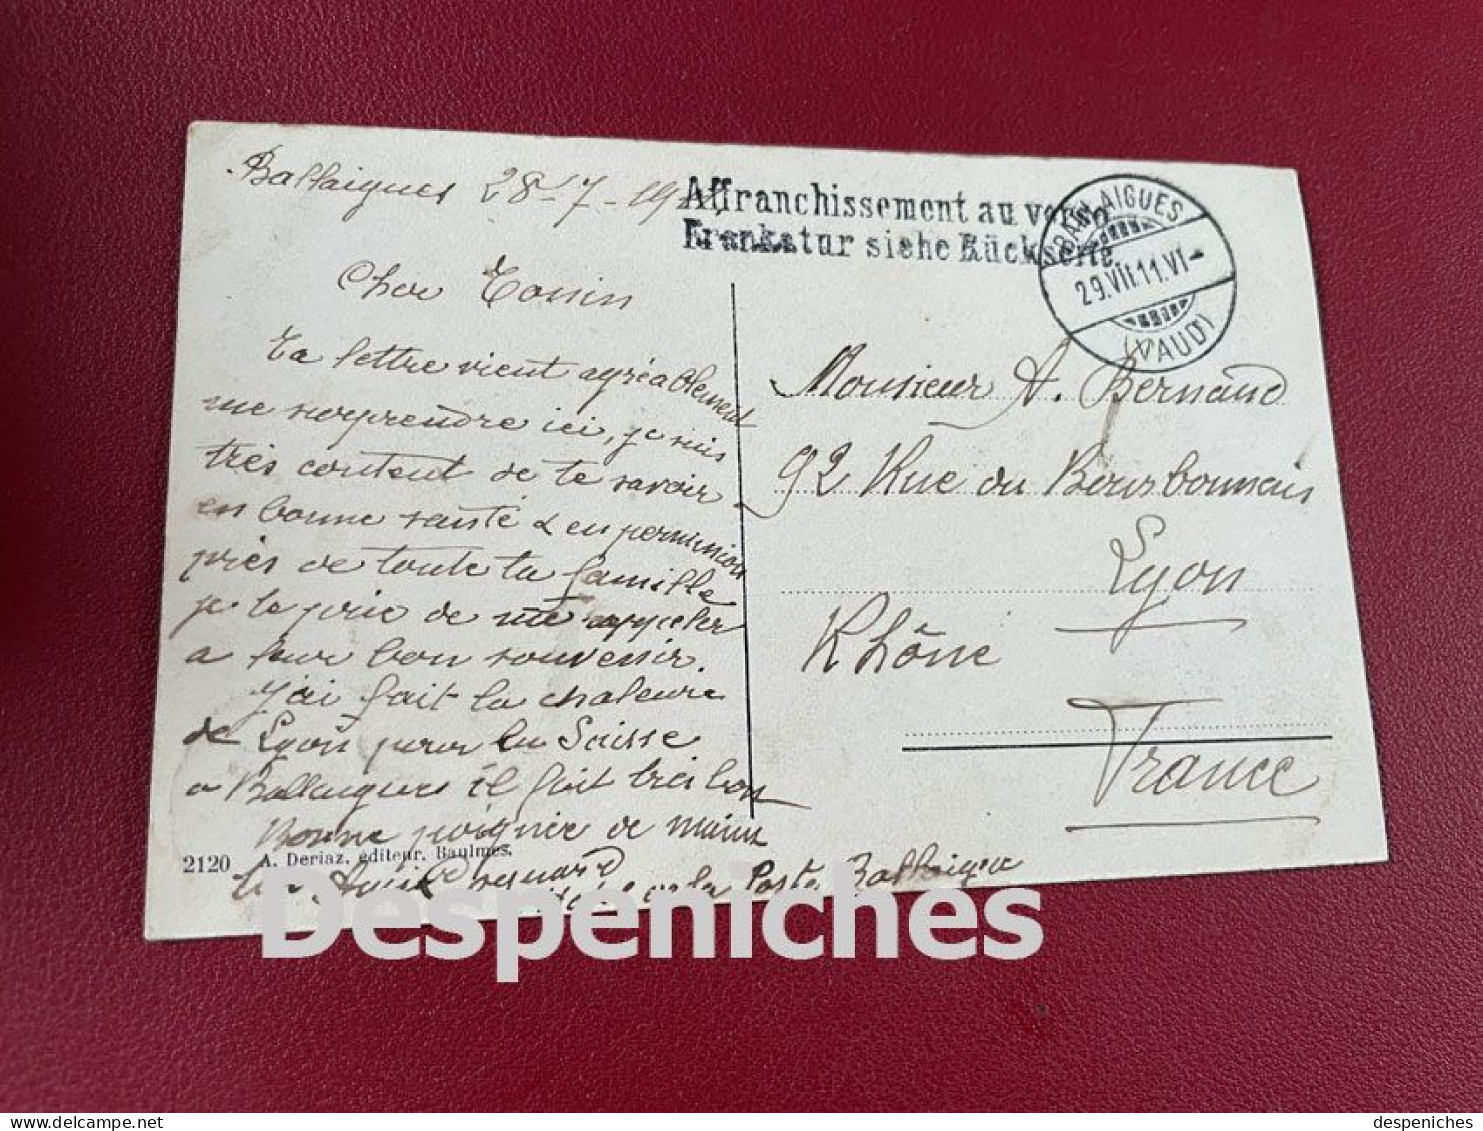 Ballaigues 28-7-19
Affranchissement au verso
Frankatur siehe Rückseite.
BALLAIGUES
29.VII.11.VI-
(VAUD)
Cher Cousin
Ta lettre vient agréablement
me surprendre ici, je suis
très content de te savoir
en bonne santé & en permission
près de toute ta famille
je te prie de me rappeler
a leur bon souvenir.
J'ai fait la chaleure
de Lyon pour la Suisse
a Ballaigues il fait très bon
Bonne poignée de main
2120 A. Deriaz, éditeur. Baulmes.
de la Poste Ballaigues
Monsieur A. Bernard
92 Rue du Bourbonnais
Lyon
Rhône
France
Despeniches
delcampe.net
despeniches